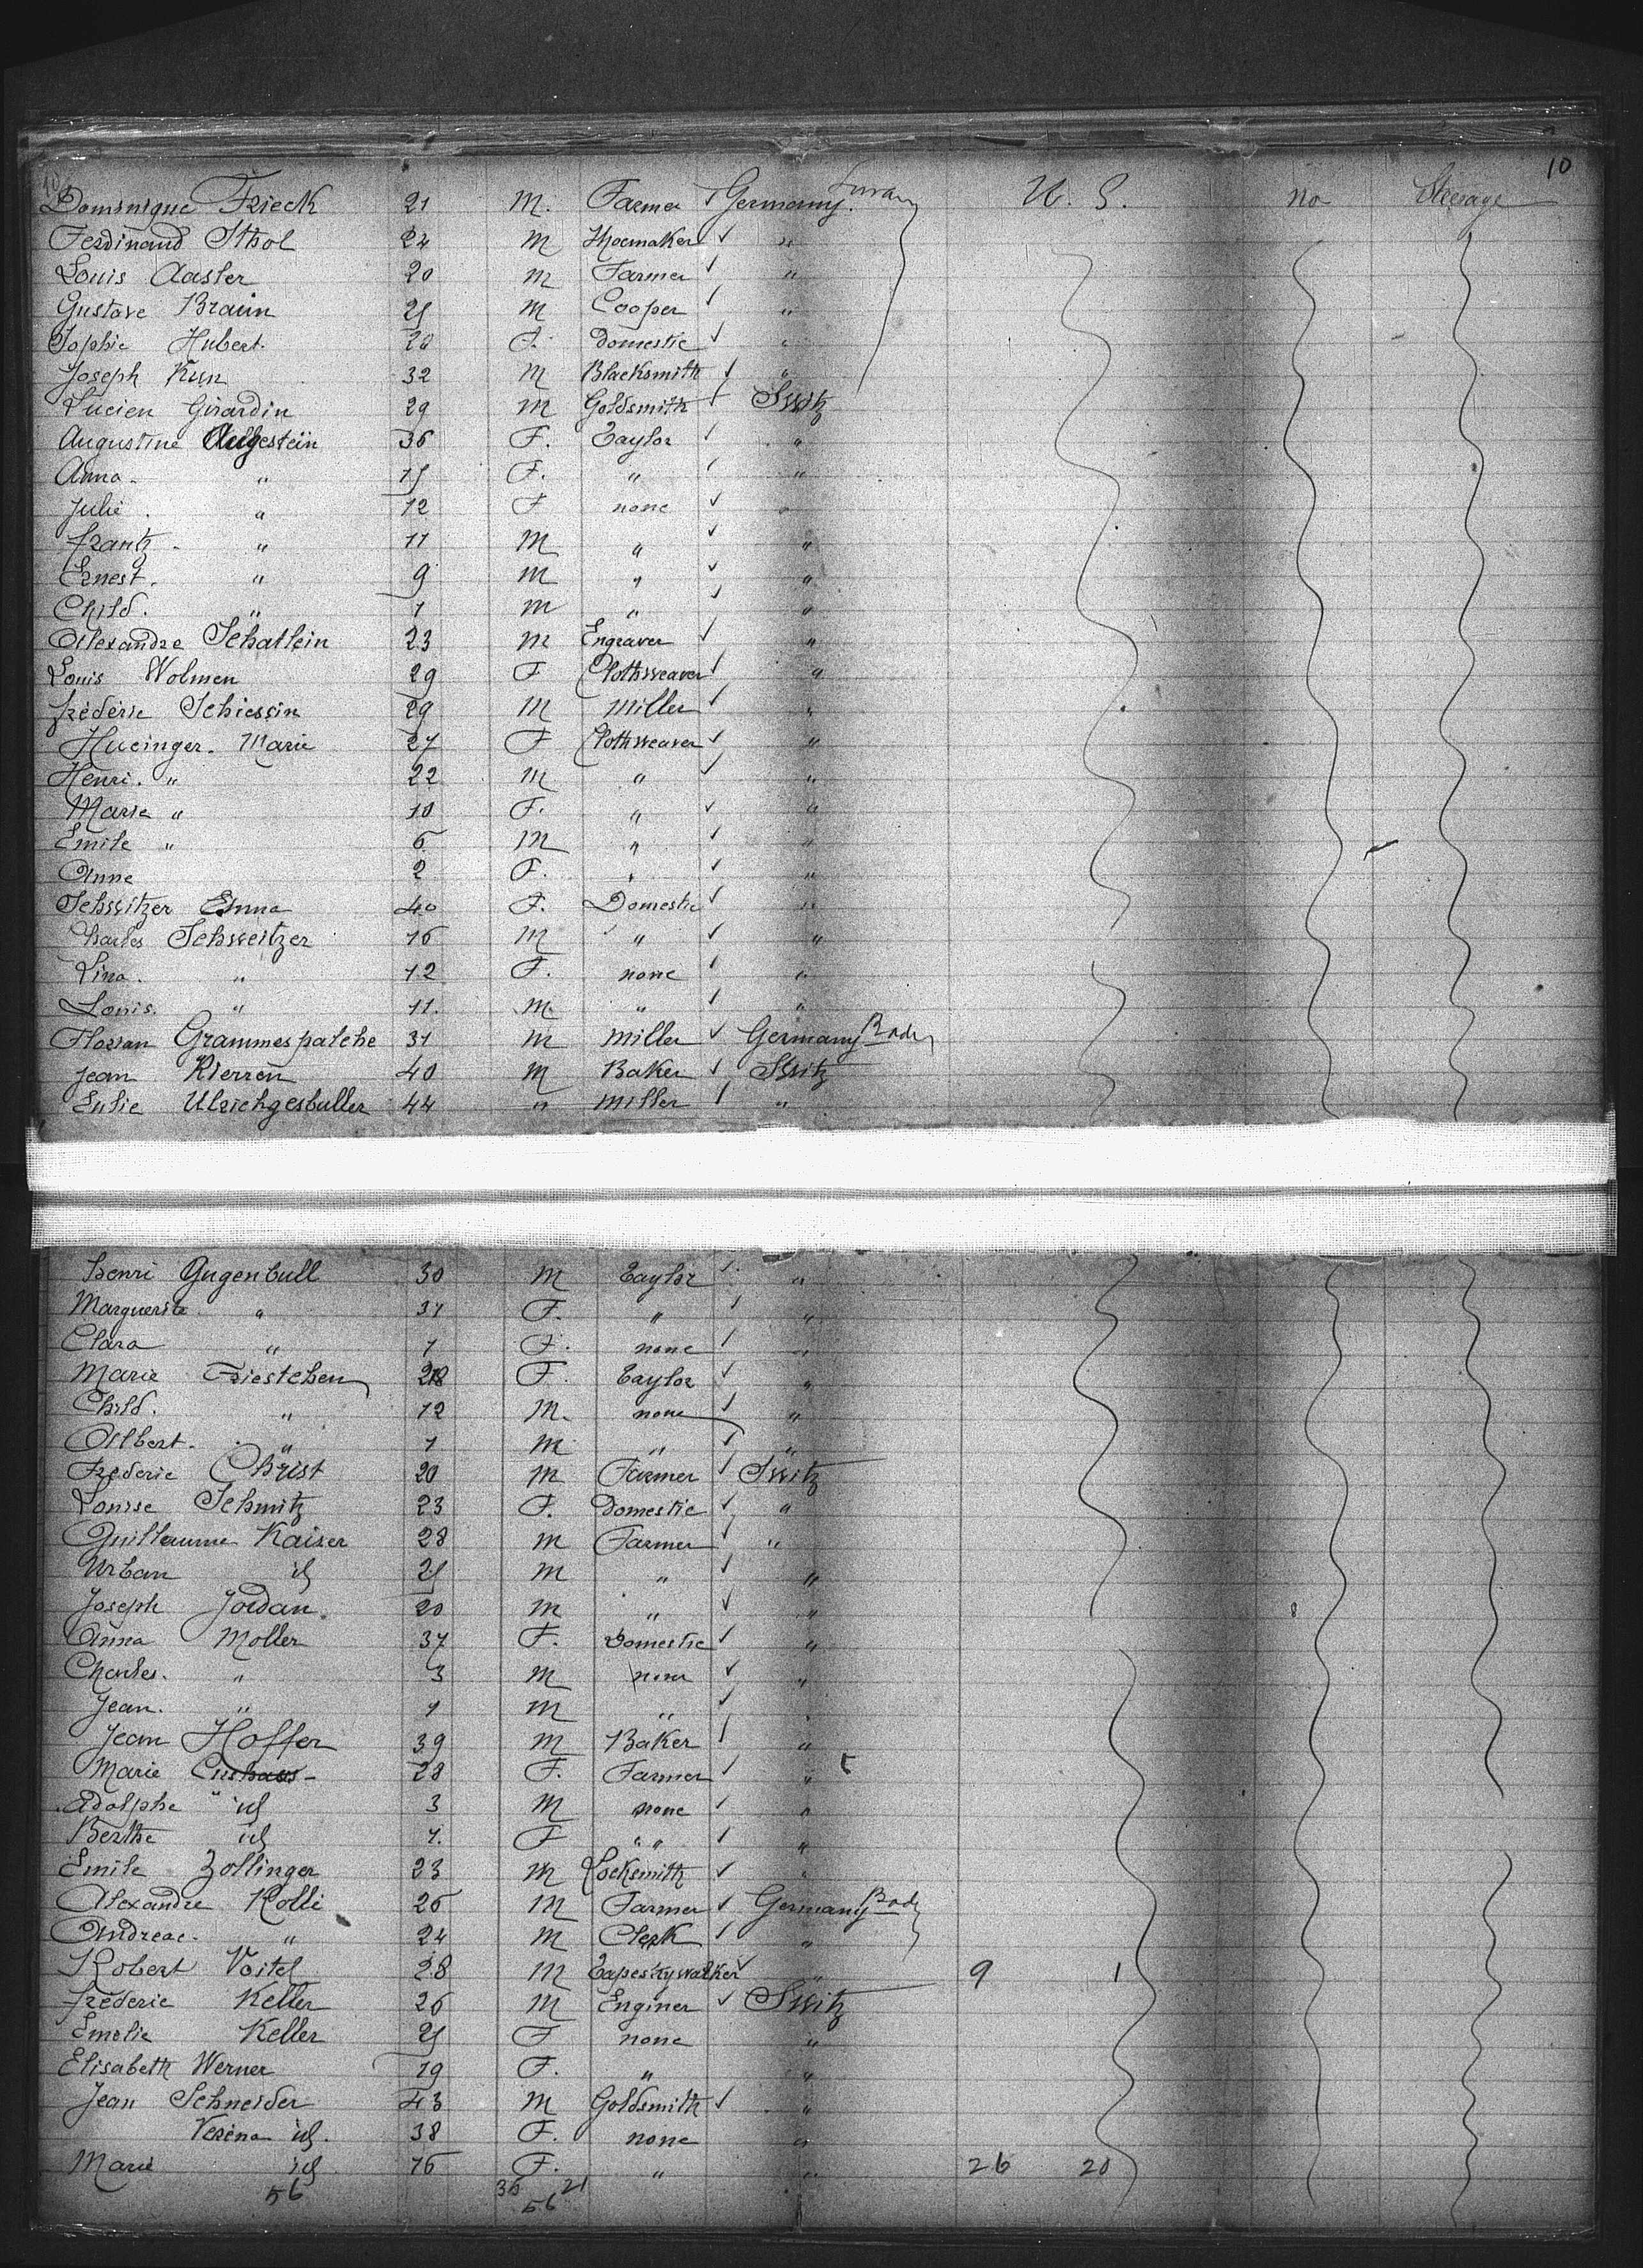 10
Dominique Frieck 21 M. Farmer Germany. U. S. no Steerage
Ferdinand Sthol 24 M Shoemaker "
Louis Aasler 20 M Farmer "
Gustave Braun 25 M Cooper "
Sophie Hubert. 20 F. Domestic "
Joseph Kun 32 M Blacksmith "
Lucien Girardin 29 M Goldsmith Switz
Augustine 36 F. Taylor "
Anna. " 15 F. " "
Julie. " 12 F none "
frantz. " 11 M " "
Ernest. " 9 M " "
Child. " 1 M " "
Alexandre Schatlein 23 M Engraver "
Louis Wolmen 29 F Clothweaver "
frédéric Schiessin 29 M Miller "
Hucinger. Marie 27 F Clothweaver "
Henri. " 22 M " "
Marie " 10 F. " "
Emile " 6 M " "
Anne 2 F. " "
Schwitzer Emma 40 F. Domestic "
Charles Schweitzer 16 M " "
Lina. " 12 F. none "
Louis. " 11. M. " "
Florian Grammespatche 31 M Miller Germany Bade
Jean Rierren 40 M Baker Switz
Julie Ulrichgesbuller 44 " Miller "
henri Gugenbull 30 M Taylor "
Marguerite " 31 F. " "
Clara " 1 F. none "
Marie Friestchen 28 F. Taylor "
Child. " 12 M. none "
Albert. " 1 M " "
Fréderic Christ 20 M Farmer Switz
Louise Schmitz 23 F. Domestic "
Guillaume Kaiser 28 M Farmer "
Urban id 25 M " "
Joseph Jordan. 20 M " "
Anna Moller 37 F. Domestic "
Charles. " 3 M none "
Jean. " 1 M " "
Jean Hoffer 39 M Baker "
Marie 28 F. Farmer "
Adolphe " id 3 M none "
Berthe id 1. F " " "
Emile Zollinger 23 M Locksmith "
Alexandre Kolli 26 M Farmer Germany Bade
Andreae. " 24 M Clerk "
Robert Voitel 28 M Tapestryworker " 9 1
fréderic Keller 26 M Enginer Switz
Emelie Keller 25 F none "
Elisabeth Werner 19 F. " "
Jean Schneider 43 M Goldsmith "
Verena id. 38 F. none "
Marie id 16 F. " " 26 20
56 36 21
56